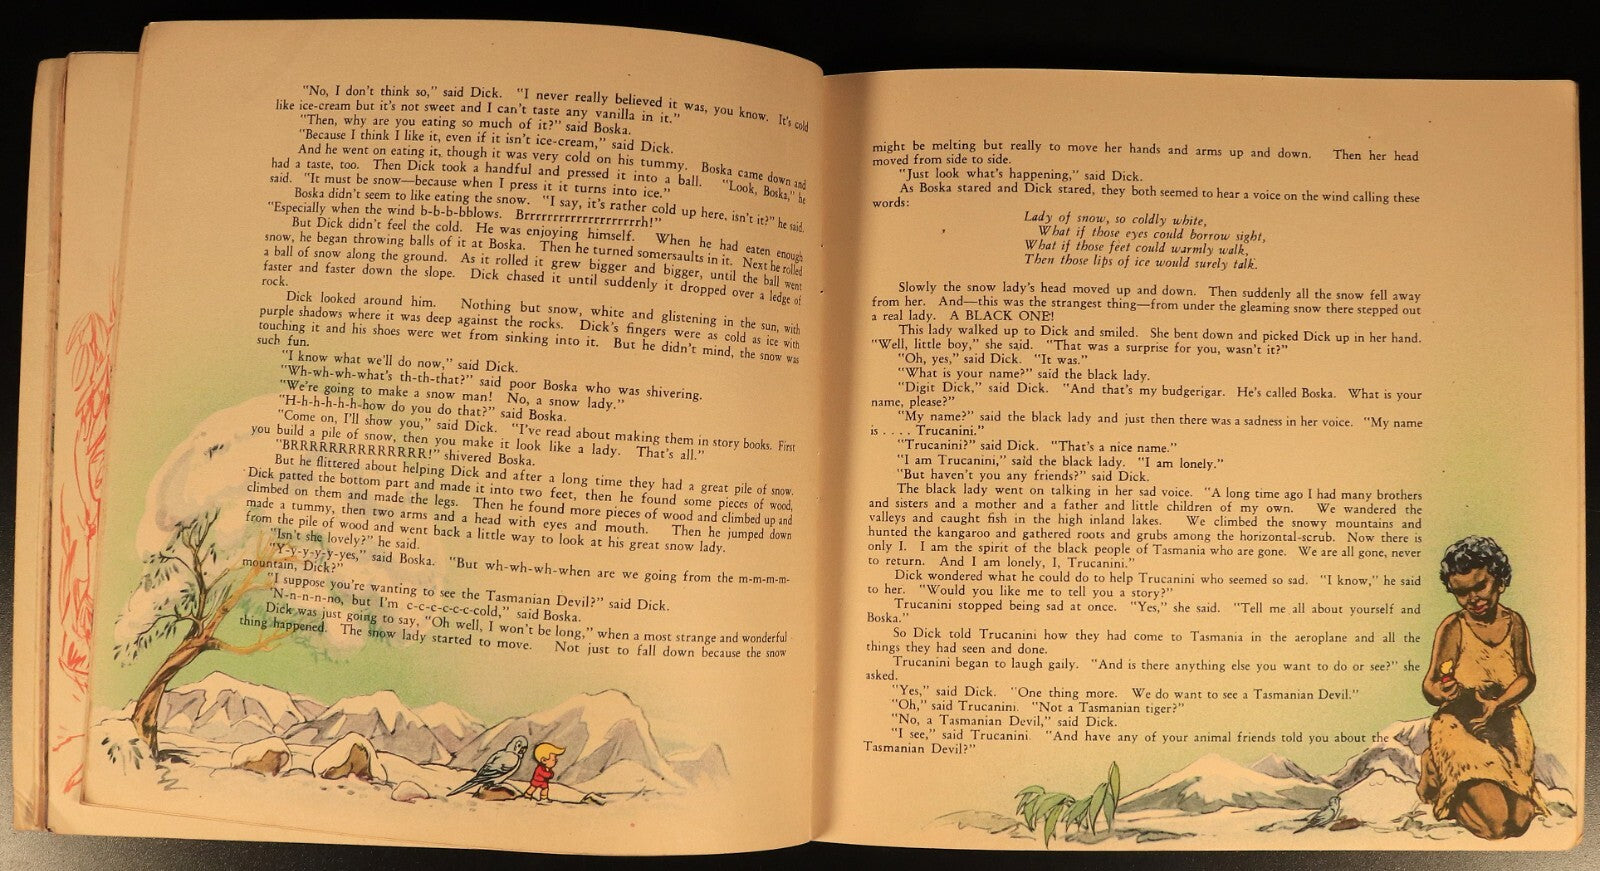 "No, I don't think so," said Dick. "I never really believed it was, you know. It's cold
like ice-cream but it's not sweet and I can't taste any vanilla in it."
"Then, why are you eating so much of it?" said Boska.
"Because I think I like it, even if it isn't ice-cream," said Dick.
And he went on eating it, though it was very cold on his tummy. Boska came down and
had a taste, too. Then Dick took a handful and pressed it into a ball. "Look, Boska," he
said. "It must be snow—because when I press it it turns into ice."
Boska didn't seem to like eating the snow. "I say, it's rather cold up here, isn't it?" he said.
"Especially when the wind b-b-b-bblows. Brrrrrrrrrrrrrrrrrrrrh!"
But Dick didn't feel the cold. He was enjoying himself. When he had eaten enough
snow, he began throwing balls of it at Boska. Then he turned somersaults in it. Next he rolled
a ball of snow along the ground. As it rolled it grew bigger and bigger, until the ball went
faster and faster down the slope. Dick chased it until suddenly it dropped over a ledge of
rock.
Dick looked around him. Nothing but snow, white and glistening in the sun, with
purple shadows where it was deep against the rocks. Dick's fingers were as cold as ice with
touching it and his shoes were wet from sinking into it. But he didn't mind, the snow was
such fun.
"I know what we'll do now," said Dick.
"Wh-wh-wh-what's th-th-that?" said poor Boska who was shivering.
"We're going to make a snow man! No, a snow lady."
"H-h-h-h-h-how do you do that?" said Boska.
"Come on, I'll show you," said Dick. "I've read about making them in story books. First
you build a pile of snow, then you make it look like a lady. That's all."
"BRRRRRRRRRRRRRR!" shivered Boska.
But he flittered about helping Dick and after a long time they had a great pile of snow.
Dick patted the bottom part and made it into two feet, then he found some pieces of wood,
climbed on them and made the legs. Then he found more pieces of wood and climbed up and
made a tummy, then two arms and a head with eyes and mouth. Then he jumped down
from the pile of wood and went back a little way to look at his great snow lady.
"Isn't she lovely?" he said.
"Y-y-y-y-y-yes," said Boska. "But wh-wh-wh-when are we going from the m-m-m-m-
mountain, Dick?"
"I suppose you're wanting to see the Tasmanian Devil?" said Dick.
"N-n-n-n-no, but I'm c-c-c-c-c-cold," said Boska.
Dick was just going to say, "Oh well, I won't be long," when a most strange and wonderful
thing happened. The snow lady started to move. Not just to fall down because the snow
might be melting but really to move her hands and arms up and down. Then her head
moved from side to side.
"Just look what's happening," said Dick.
As Boska stared and Dick stared, they both seemed to hear a voice on the wind calling these
words:
Lady of snow, so coldly white,
What if those eyes could borrow sight,
What if those feet could warmly walk,
Then those lips of ice would surely talk.
Slowly the snow lady's head moved up and down. Then suddenly all the snow fell away
from her. And—this was the strangest thing—from under the gleaming snow there stepped out
a real lady. A BLACK ONE!
This lady walked up to Dick and smiled. She bent down and picked Dick up in her hand.
"Well, little boy," she said. "That was a surprise for you, wasn't it?"
"Oh, yes," said Dick. "It was."
"What is your name?" said the black lady.
"Digit Dick," said Dick. "And that's my budgerigar. He's called Boska. What is your
name, please?"
"My name?" said the black lady and just then there was a sadness in her voice. "My name
is . . . . Trucanini."
"Trucanini?" said Dick. "That's a nice name."
"I am Trucanini," said the black lady. "I am lonely."
"But haven't you any friends?" said Dick.
The black lady went on talking in her sad voice. "A long time ago I had many brothers
and sisters and a mother and a father and little children of my own. We wandered the
valleys and caught fish in the high inland lakes. We climbed the snowy mountains and
hunted the kangaroo and gathered roots and grubs among the horizontal-scrub. Now there is
only I. I am the spirit of the black people of Tasmania who are gone. We are all gone, never
to return. And I am lonely, I, Trucanini."
Dick wondered what he could do to help Trucanini who seemed so sad. "I know," he said
to her. "Would you like me to tell you a story?"
Trucanini stopped being sad at once. "Yes," she said. "Tell me all about yourself and
Boska."
So Dick told Trucanini how they had come to Tasmania in the aeroplane and all the
things they had seen and done.
Trucanini began to laugh gaily. "And is there anything else you want to do or see?" she
asked.
"Yes," said Dick. "One thing more. We do want to see a Tasmanian Devil."
"Oh," said Trucanini. "Not a Tasmanian tiger?"
"No, a Tasmanian Devil," said Dick.
"I see," said Trucanini. "And have any of your animal friends told you about the
Tasmanian Devil?"